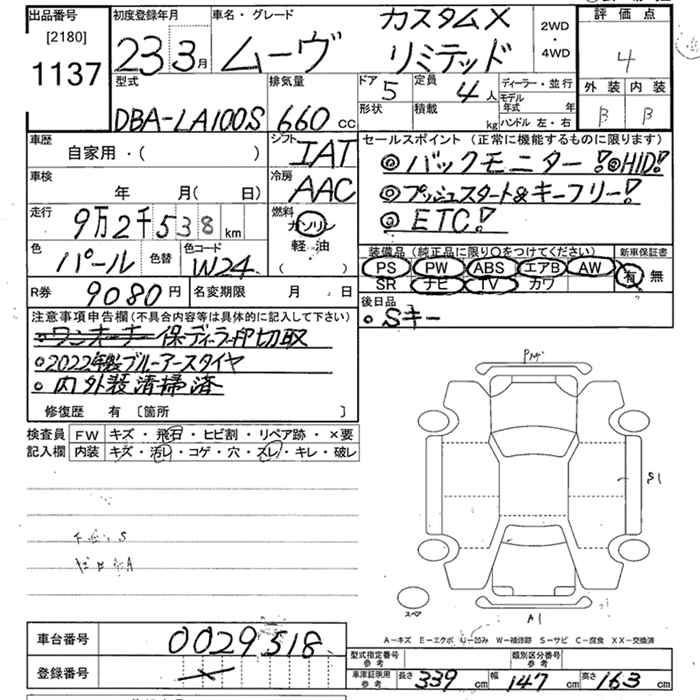 出品番号 初度登録年月 車名・グレード 評価点
[2180] 1137
23年3月 ムーヴ カスタムX リミテッド 2WD・4WD 4
型式 排気量 ドア 定員 ディーラー・並行 外装 内装
DBA-LA100S 660cc 5 4人 モデル年式 年 B B
形状 積載 kg ハンドル 左・右
車歴 シフト セールスポイント(正常に機能するものに限ります)
自家用・( ) IAT ◎バックモニター!◎HID!
車検 冷房 ◎プッシュスタート&キーフリー!
年 月( 日) AAC ◎ETC!
走行 燃料 装備品(純正品に限り○をつけてください) 新車保証書
9万2千538km ガソリン PS PW ABS エアB AW 有 無
軽油 SR ナビ TV カワ
色 色替 色コード ( )
パール W24
R券 9080円 名変期限 月 日 後日品
・Sキー
注意事項申告欄(不具合内容等は具体的に記入して下さい)
・ワンオーナー 保ディーラー印切取
・2022年製ブルーアースタイヤ
・内外装清掃済
修復歴 有 [箇所 ]
検査員 FW キズ・飛石・ヒビ割・リペア跡・×要
記入欄 内装 キズ・汚レ・コゲ・穴・スレ・キレ・破レ
S1
スペア
A1
A-キズ E-エクボ U-凹み W-補修跡 S-サビ C-腐食 XX-交換済
車台番号 0029518 型式指定番号 参考 類別区分番号 参考
登録番号 車庫証明用 参考 長さ 339cm 幅 147cm 高さ 163cm